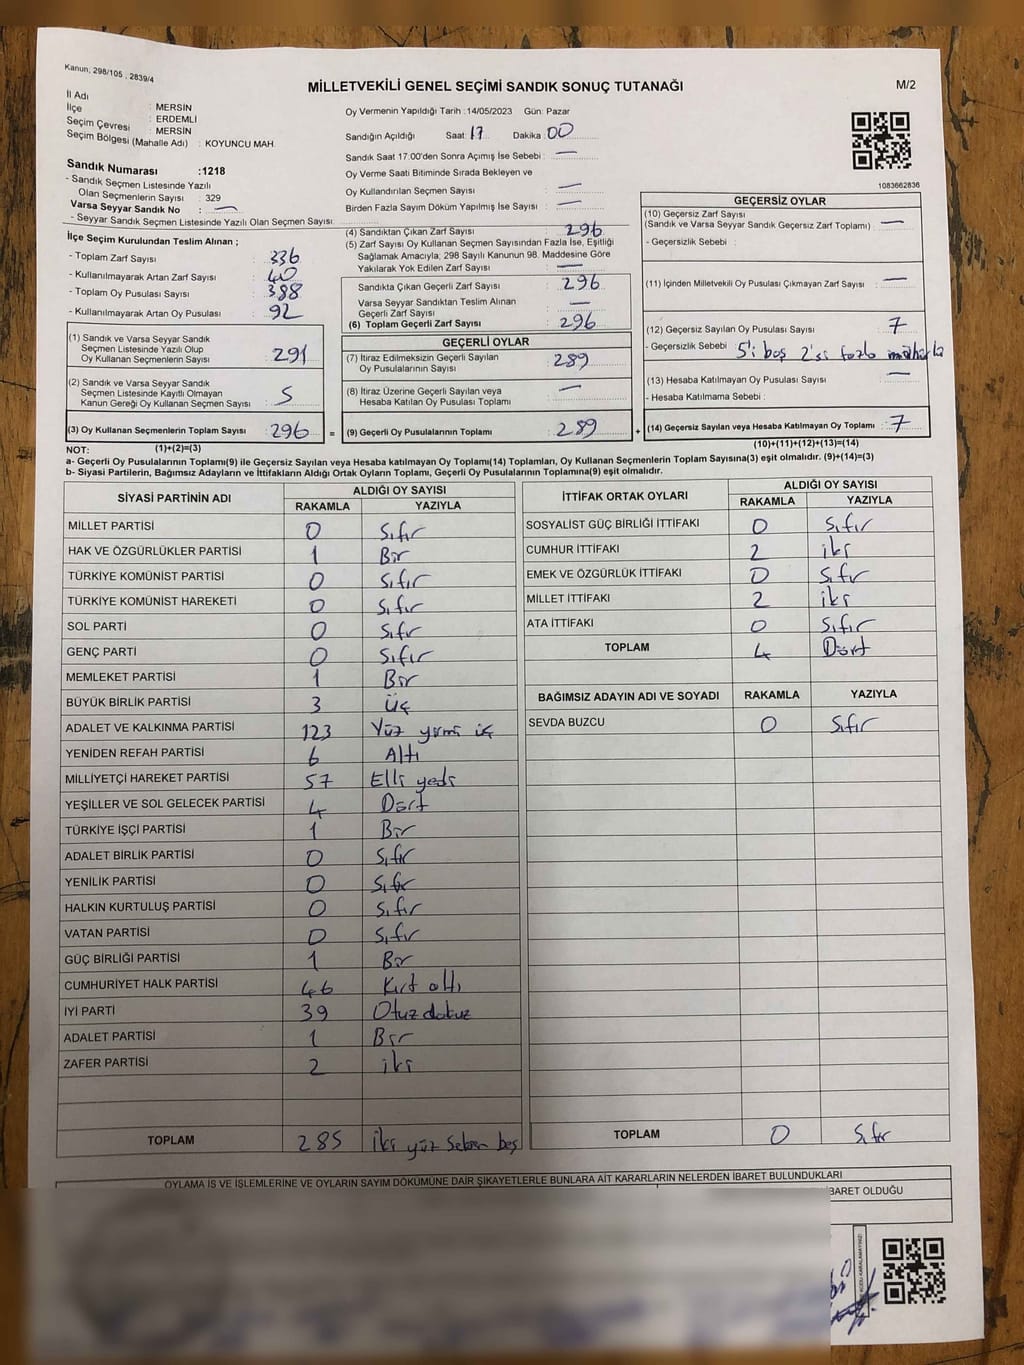 Kanun; 298/105 , 2839/4
MİLLETVEKİLİ GENEL SEÇİMİ SANDIK SONUÇ TUTANAĞI
M/2
İl Adı : MERSİN
İlçe : ERDEMLİ
Seçim Çevresi : MERSİN
Seçim Bölgesi (Mahalle Adı) : KOYUNCU MAH.
Oy Vermenin Yapıldığı Tarih : 14/05/2023 Gün: Pazar
Sandığın Açıldığı Saat: 17 Dakika: 00
Sandık Saat 17.00'den Sonra Açımış İse Sebebi : —
Oy Verme Saati Bitiminde Sırada Bekleyen ve
Oy Kullandırılan Seçmen Sayısı : —
Birden Fazla Sayım Döküm Yapılmış İse Sayısı : —
1083662836
Sandık Numarası :1218
- Sandık Seçmen Listesinde Yazılı
Olan Seçmenlerin Sayısı : 329
Varsa Seyyar Sandık No : —
- Seyyar Sandık Seçmen Listesinde Yazılı Olan Seçmen Sayısı:
İlçe Seçim Kurulundan Teslim Alınan ;
- Toplam Zarf Sayısı : 336
- Kullanılmayarak Artan Zarf Sayısı : 40
- Toplam Oy Pusulası Sayısı : 388
- Kullanılmayarak Artan Oy Pusulası : 92
(1) Sandık ve Varsa Seyyar Sandık
Seçmen Listesinde Yazılı Olup
Oy Kullanan Seçmenlerin Sayısı : 291
(2) Sandık ve Varsa Seyyar Sandık
Seçmen Listesinde Kayıtlı Olmayan
Kanun Gereği Oy Kullanan Seçmen Sayısı : 5
(3) Oy Kullanan Seçmenlerin Toplam Sayısı : 296 =
(1)+(2)=(3)
(4) Sandıktan Çıkan Zarf Sayısı : 296
(5) Zarf Sayısı Oy Kullanan Seçmen Sayısından Fazla İse, Eşitliği
Sağlamak Amacıyla; 298 Sayılı Kanunun 98. Maddesine Göre
Yakılarak Yok Edilen Zarf Sayısı : —
Sandıkta Çıkan Geçerli Zarf Sayısı : 296
Varsa Seyyar Sandıktan Teslim Alınan
Geçerli Zarf Sayısı : —
(6) Toplam Geçerli Zarf Sayısı : 296
GEÇERLİ OYLAR
(7) İtiraz Edilmeksizin Geçerli Sayılan
Oy Pusulalarının Sayısı : 289
(8) İtiraz Üzerine Geçerli Sayılan veya
Hesaba Katılan Oy Pusulası Toplamı : —
(9) Geçerli Oy Pusulalarının Toplamı : 289 +
GEÇERSİZ OYLAR
(10) Geçersiz Zarf Sayısı
(Sandık ve Varsa Seyyar Sandık Geçersiz Zarf Toplamı) : —
- Geçersizlik Sebebi :
(11) İçinden Milletvekili Oy Pusulası Çıkmayan Zarf Sayısı : —
(12) Geçersiz Sayılan Oy Pusulası Sayısı : 7
- Geçersizlik Sebebi : 5'i boş 2'si fazla mühürlü
(13) Hesaba Katılmayan Oy Pusulası Sayısı : —
- Hesaba Katılmama Sebebi :
(14) Geçersiz Sayılan veya Hesaba Katılmayan Oy Toplamı : 7
(10)+(11)+(12)+(13)=(14)
NOT:
a- Geçerli Oy Pusulalarının Toplamı(9) ile Geçersiz Sayılan veya Hesaba katılmayan Oy Toplamı(14) Toplamları, Oy Kullanan Seçmenlerin Toplam Sayısına(3) eşit olmalıdır. (9)+(14)=(3)
b- Siyasi Partilerin, Bağımsız Adayların ve İttifakların Aldığı Ortak Oyların Toplamı, Geçerli Oy Pusulalarının Toplamına(9) eşit olmalıdır.
SİYASİ PARTİNİN ADI ALDIĞI OY SAYISI
RAKAMLA YAZIYLA
MİLLET PARTİSİ 0 Sıfır
HAK VE ÖZGÜRLÜKLER PARTİSİ 1 Bir
TÜRKİYE KOMÜNİST PARTİSİ 0 Sıfır
TÜRKİYE KOMÜNİST HAREKETİ 0 Sıfır
SOL PARTİ 0 Sıfır
GENÇ PARTİ 0 Sıfır
MEMLEKET PARTİSİ 1 Bir
BÜYÜK BİRLİK PARTİSİ 3 Üç
ADALET VE KALKINMA PARTİSİ 123 Yüz yirmi üç
YENİDEN REFAH PARTİSİ 6 Altı
MİLLİYETÇİ HAREKET PARTİSİ 57 Elli yedi
YEŞİLLER VE SOL GELECEK PARTİSİ 4 Dört
TÜRKİYE İŞÇİ PARTİSİ 1 Bir
ADALET BİRLİK PARTİSİ 0 Sıfır
YENİLİK PARTİSİ 0 Sıfır
HALKIN KURTULUŞ PARTİSİ 0 Sıfır
VATAN PARTİSİ 0 Sıfır
GÜÇ BİRLİĞİ PARTİSİ 1 Bir
CUMHURİYET HALK PARTİSİ 46 Kırk altı
İYİ PARTİ 39 Otuz dokuz
ADALET PARTİSİ 1 Bir
ZAFER PARTİSİ 2 iki
TOPLAM 285 iki yüz seksen beş
İTTİFAK ORTAK OYLARI ALDIĞI OY SAYISI
RAKAMLA YAZIYLA
SOSYALİST GÜÇ BİRLİĞİ İTTİFAKI 0 Sıfır
CUMHUR İTTİFAKI 2 iki
EMEK VE ÖZGÜRLÜK İTTİFAKI 0 Sıfır
MİLLET İTTİFAKI 2 iki
ATA İTTİFAKI 0 Sıfır
TOPLAM 4 Dört
BAĞIMSIZ ADAYIN ADI VE SOYADI RAKAMLA YAZIYLA
SEVDA BUZCU 0 Sıfır
TOPLAM 0 Sıfır
OYLAMA İŞ VE İŞLEMLERİNE VE OYLARIN SAYIM DÖKÜMÜNE DAİR ŞİKAYETLERLE BUNLARA AİT KARARLARIN NELERDEN İBARET BULUNDUKLARI
İBARET OLDUĞU